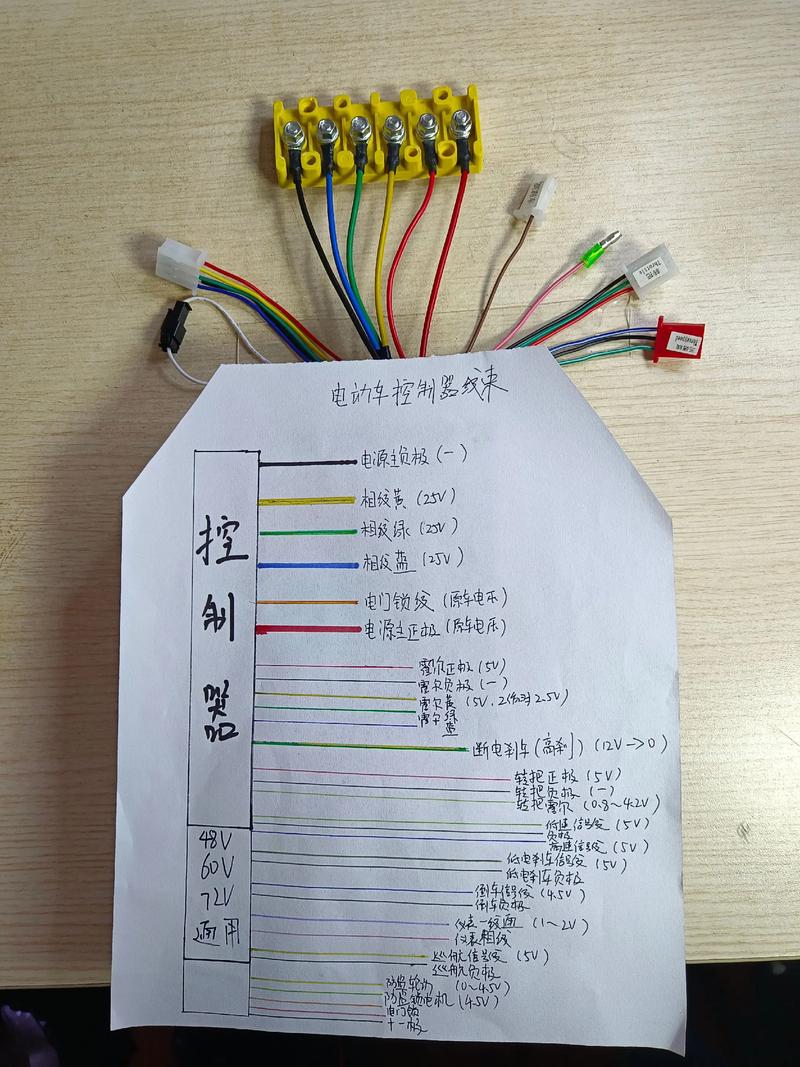 转把
Throttle
三速线
Threespeed
电动车控制器线束
控制器
电源主负极(一)
相线黄(25V)
相线绿(25V)
相线蓝(25V)
电门锁线(原车电压)
电源主正极(原车电压)
霍尔正极(5V)
霍尔负极(一)
霍尔黄(5V,
2.5V)
霍尔绿
蓝
断电刹车(高刹)(12V→0)
转把正极(5V)
转把负极(一)
转把霍尔(0.8~4.2V)
低速信号线(5V)
负极
高速信号线(5V)
低电刹车信号线(5V)
低电刹车负极
倒车信号线(4.5V)
倒车负极
仪表一线通(1~2V)
仪表相线
巡航信号线(5V)
巡航负极
防盗轮动(0~4.5V)
防盗锁电机(4.5V)
电门锁
48V
60V
72V
通用